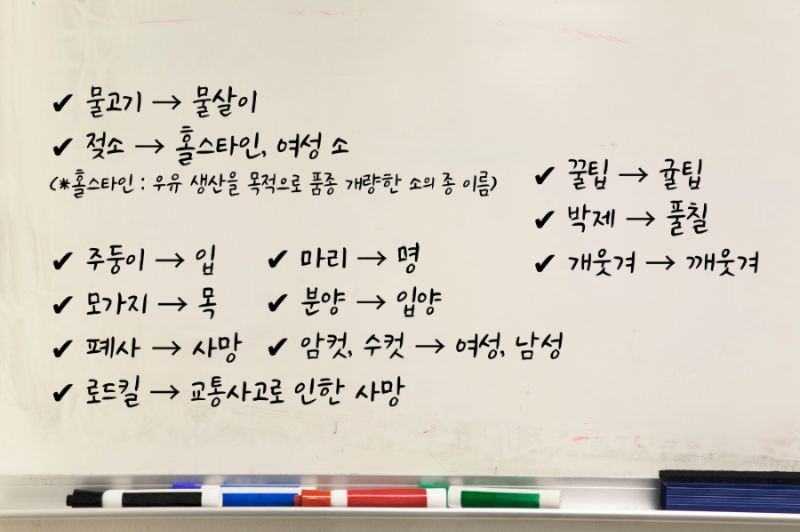 ✔ 물고기 → 물살이
✔ 젖소 → 홀스타인, 여성 소
(*홀스타인 : 우유 생산을 목적으로 품종 개량한 소의 종 이름)
✔ 주둥이 → 입
✔ 모가지 → 목
✔ 폐사 → 사망
✔ 로드킬 → 교통사고로 인한 사망
✔ 마리 → 명
✔ 분양 → 입양
✔ 암컷, 수컷 → 여성, 남성
✔ 꿀팁 → 귤팁
✔ 박제 → 풀칠
✔ 개웃겨 → 깨웃겨